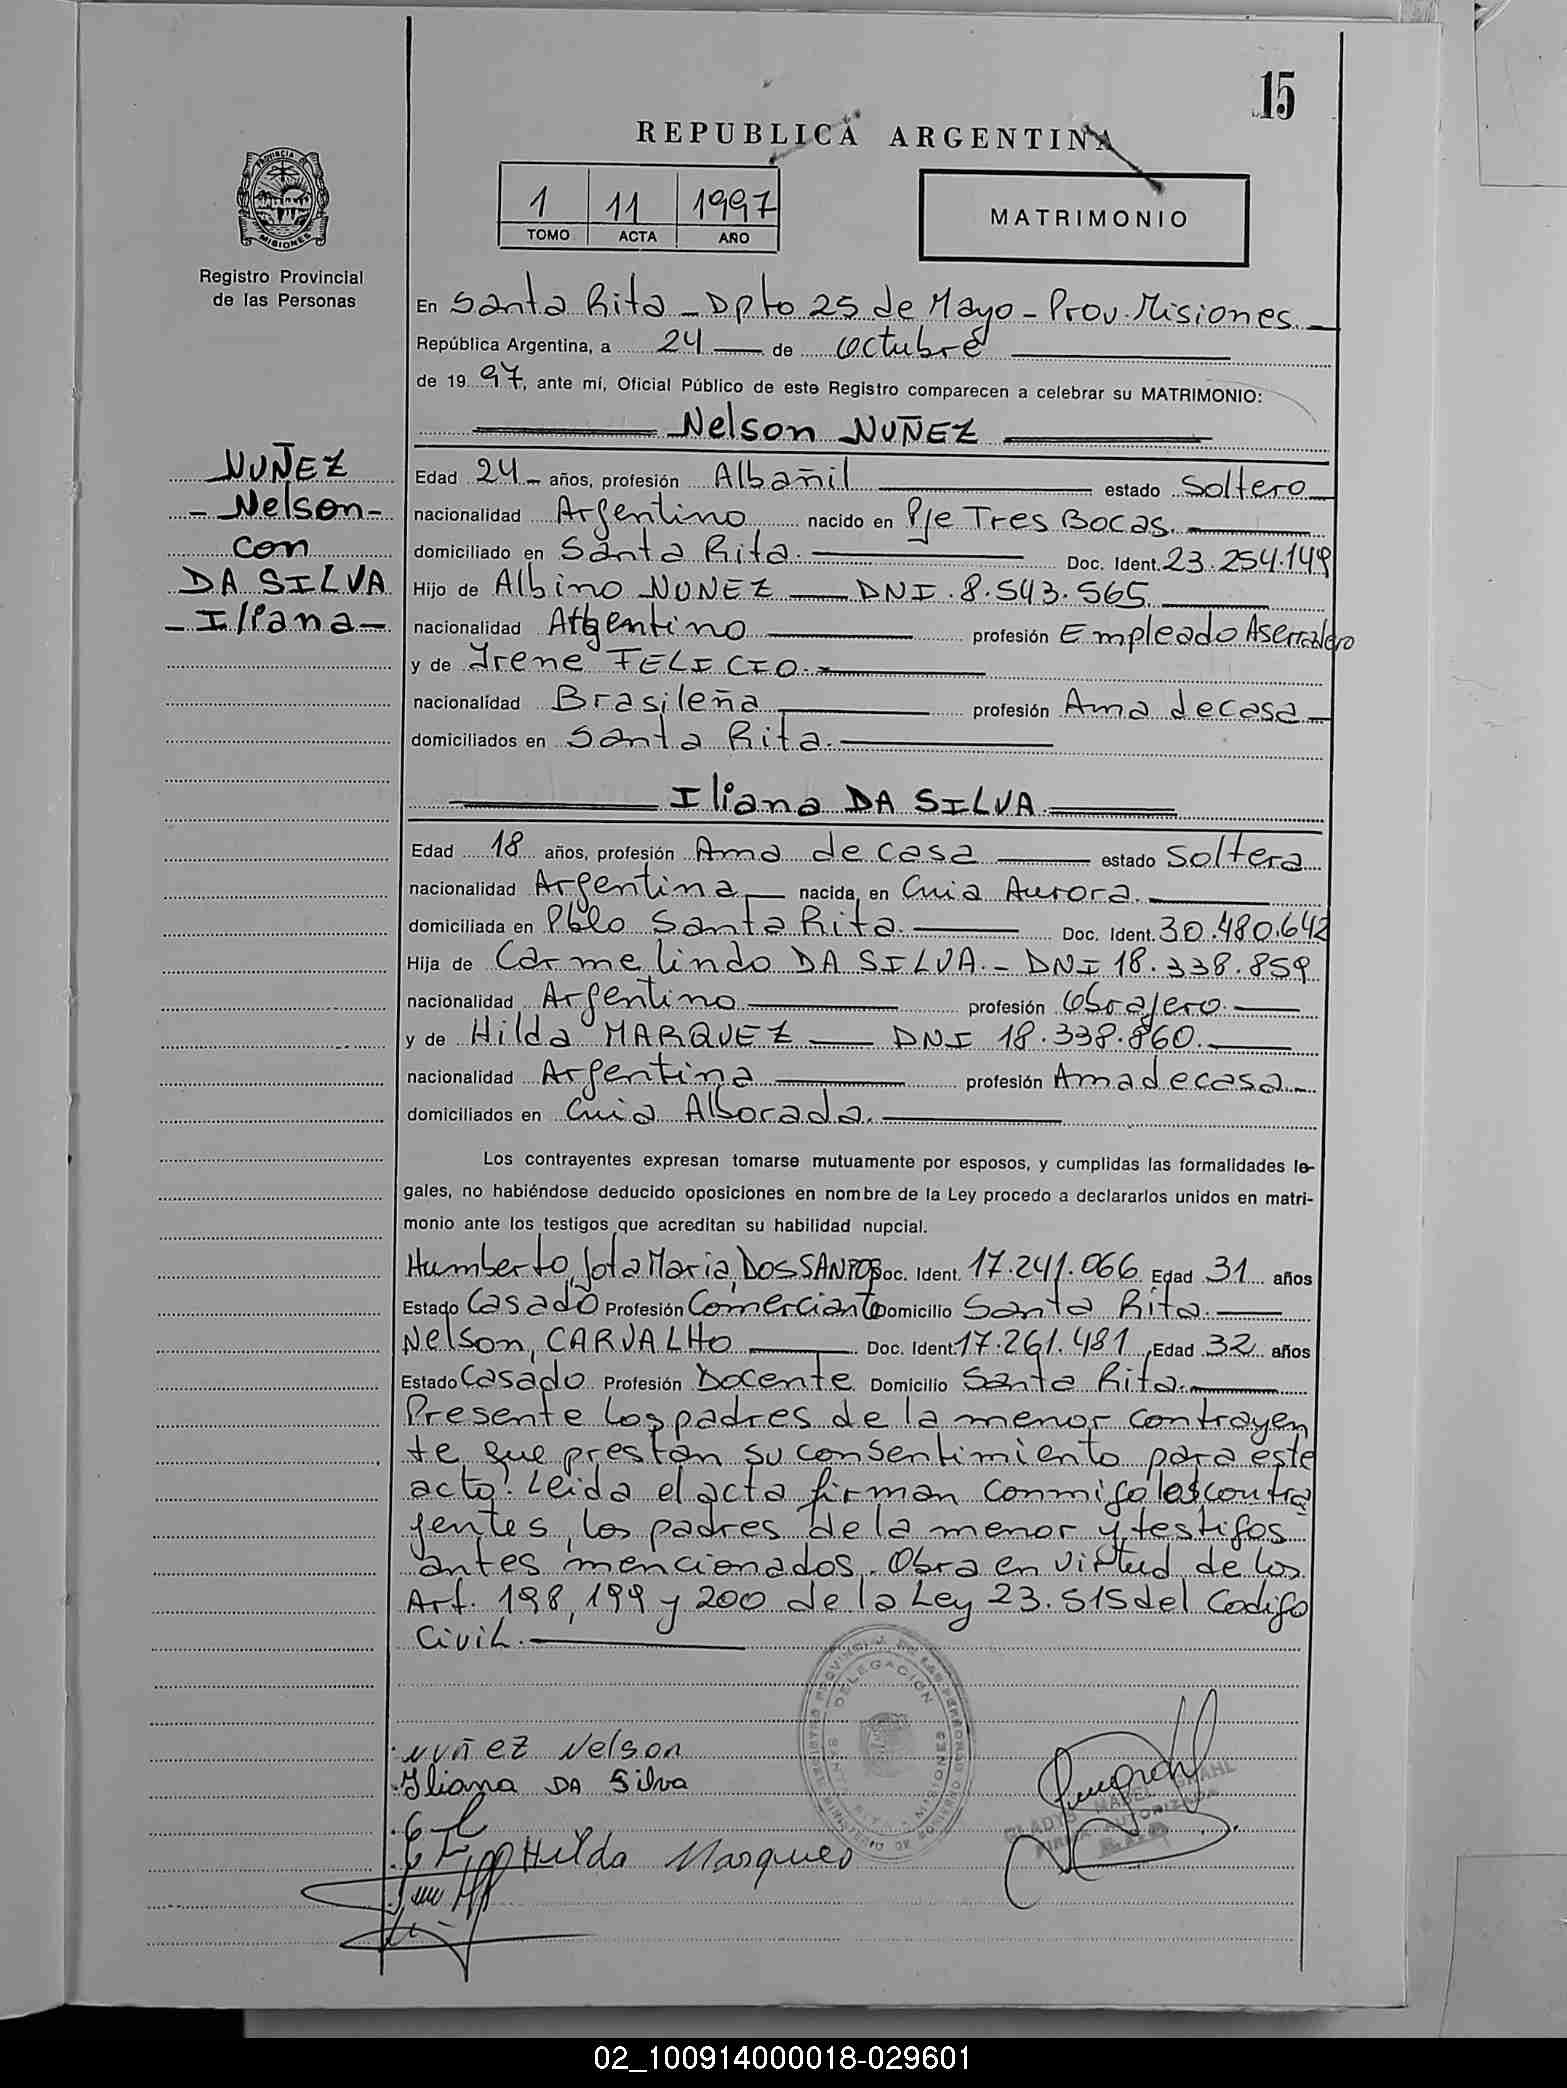 15
REPUBLICA ARGENTINA
1 11 1997
TOMO ACTA AÑO
MATRIMONIO
PROVINCIA DE
MISIONES
Registro Provincial
de las Personas
En Santa Rita - Dpto 25 de Mayo - Prov. Misiones.
República Argentina, a 24 de Octubre
de 1997, ante mí, Oficial Público de este Registro comparecen a celebrar su MATRIMONIO:
Nelson NUÑEZ
NUÑEZ
- Nelson -
con
DA SILVA
- Iliana -
Edad 24 - años, profesión Albañil estado Soltero
nacionalidad Argentino nacido en Pje Tres Bocas.
domiciliado en Santa Rita. Doc. Ident. 23.254.149
Hijo de Albino NUNEZ DNI. 8.543.565
nacionalidad Argentino profesión Empleado Aserradero
y de Irene FELICIO.
nacionalidad Brasileña profesión Ama de casa
domiciliados en Santa Rita.
Iliana DA SILVA
Edad 18 años, profesión Ama de casa estado Soltera
nacionalidad Argentina nacida en Cnia Aurora.
domiciliada en Pblo Santa Rita. Doc. Ident. 30.480.642
Hija de Carmelindo DA SILVA. - DNI 18.338.859
nacionalidad Argentino profesión Obrajero
y de Hilda MARQUEZ DNI 18.338.860.
nacionalidad Argentina profesión Ama de casa
domiciliados en Cnia Alborada.
Los contrayentes expresan tomarse mutuamente por esposos, y cumplidas las formalidades le-
gales, no habiéndose deducido oposiciones en nombre de la Ley procedo a declararlos unidos en matri-
monio ante los testigos que acreditan su habilidad nupcial.
Humberto Jota Maria, DOS SANTOS Doc. Ident. 17.241.066 Edad 31 años
Estado Casado Profesión Comerciante Domicilio Santa Rita.
Nelson, CARVALHO Doc. Ident. 17.261.481 Edad 32 años
Estado Casado Profesión Docente Domicilio Santa Rita.
Presente los padres de la menor contrayen
te que prestan su consentimiento para este
acto. Leida el acta firman conmigo los contra
yentes, los padres de la menor y testigos
antes mencionados. Obra en virtud de los
Art. 198, 199 y 200 de la Ley 23.515 del Codigo
Civil.
NUÑEZ Nelson
Iliana DA Silva
Hilda Marques
DELEGACION
SANTA RITA
MISIONES
GLADYS MABEL GRAHL
FIRMA AUTORIZADA
02_100914000018-029601